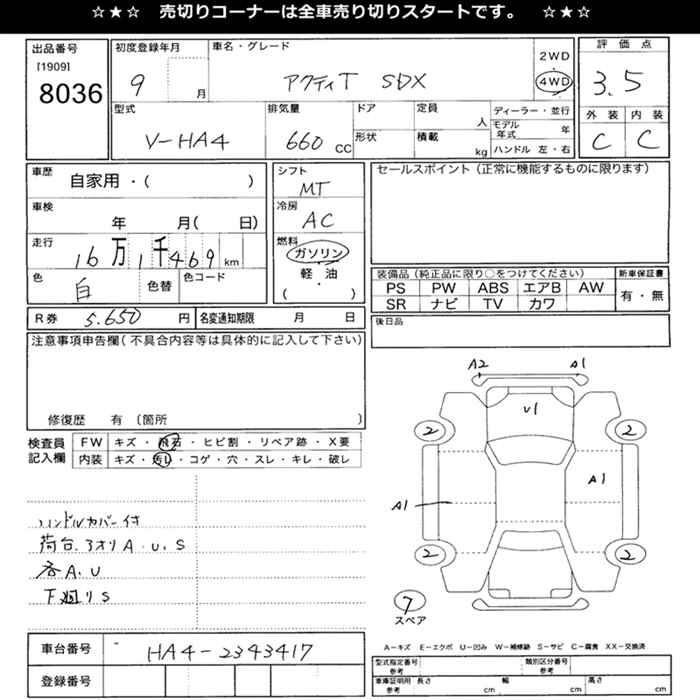 ☆★☆ 売切りコーナーは全車売り切りスタートです。 ☆★☆
出品番号
[1909]
8036
初度登録年月
9 月
車名・グレード
アクティT SDX
2WD
4WD
評価点
3.5
外装 内装
C C
型式
V-HA4
排気量
660 CC
ドア
形状
定員 人
積載 kg
ディーラー・並行
モデル年式 年
ハンドル 左・右
車歴
自家用・( )
車検
年 月( 日)
走行
16万1千469km
色
白
色替
色コード
シフト
MT
冷房
AC
燃料
ガソリン
軽・油
( )
セールスポイント(正常に機能するものに限ります)
装備品(純正品に限り○をつけてください)
PS PW ABS エアB AW
SR ナビ TV カワ
新車保証書
有・無
R券 5.650 円
名変通知期限 月 日
後日品
注意事項申告欄(不具合内容等は具体的に記入して下さい)
修復歴 有 〔箇所 〕
検査員記入欄
FW キズ・飛石・ヒビ割・リペア跡・X要
内装 キズ・汚れ・コゲ・穴・スレ・キレ・破レ
ハンドルカバー付
荷台.アオリA.U.S
各A.U
下廻りS
A2 A1
U1
2 2
A1
A1
2 2
7
スペア
車台番号
HA4-2343417
登録番号
A-キズ E-エクボ U-凹み W-補修跡 S-サビ C-腐食 XX-交換済
型式指定番号参考
類別区分番号参考
車庫証明用参考 長さ cm 幅 cm 高さ cm